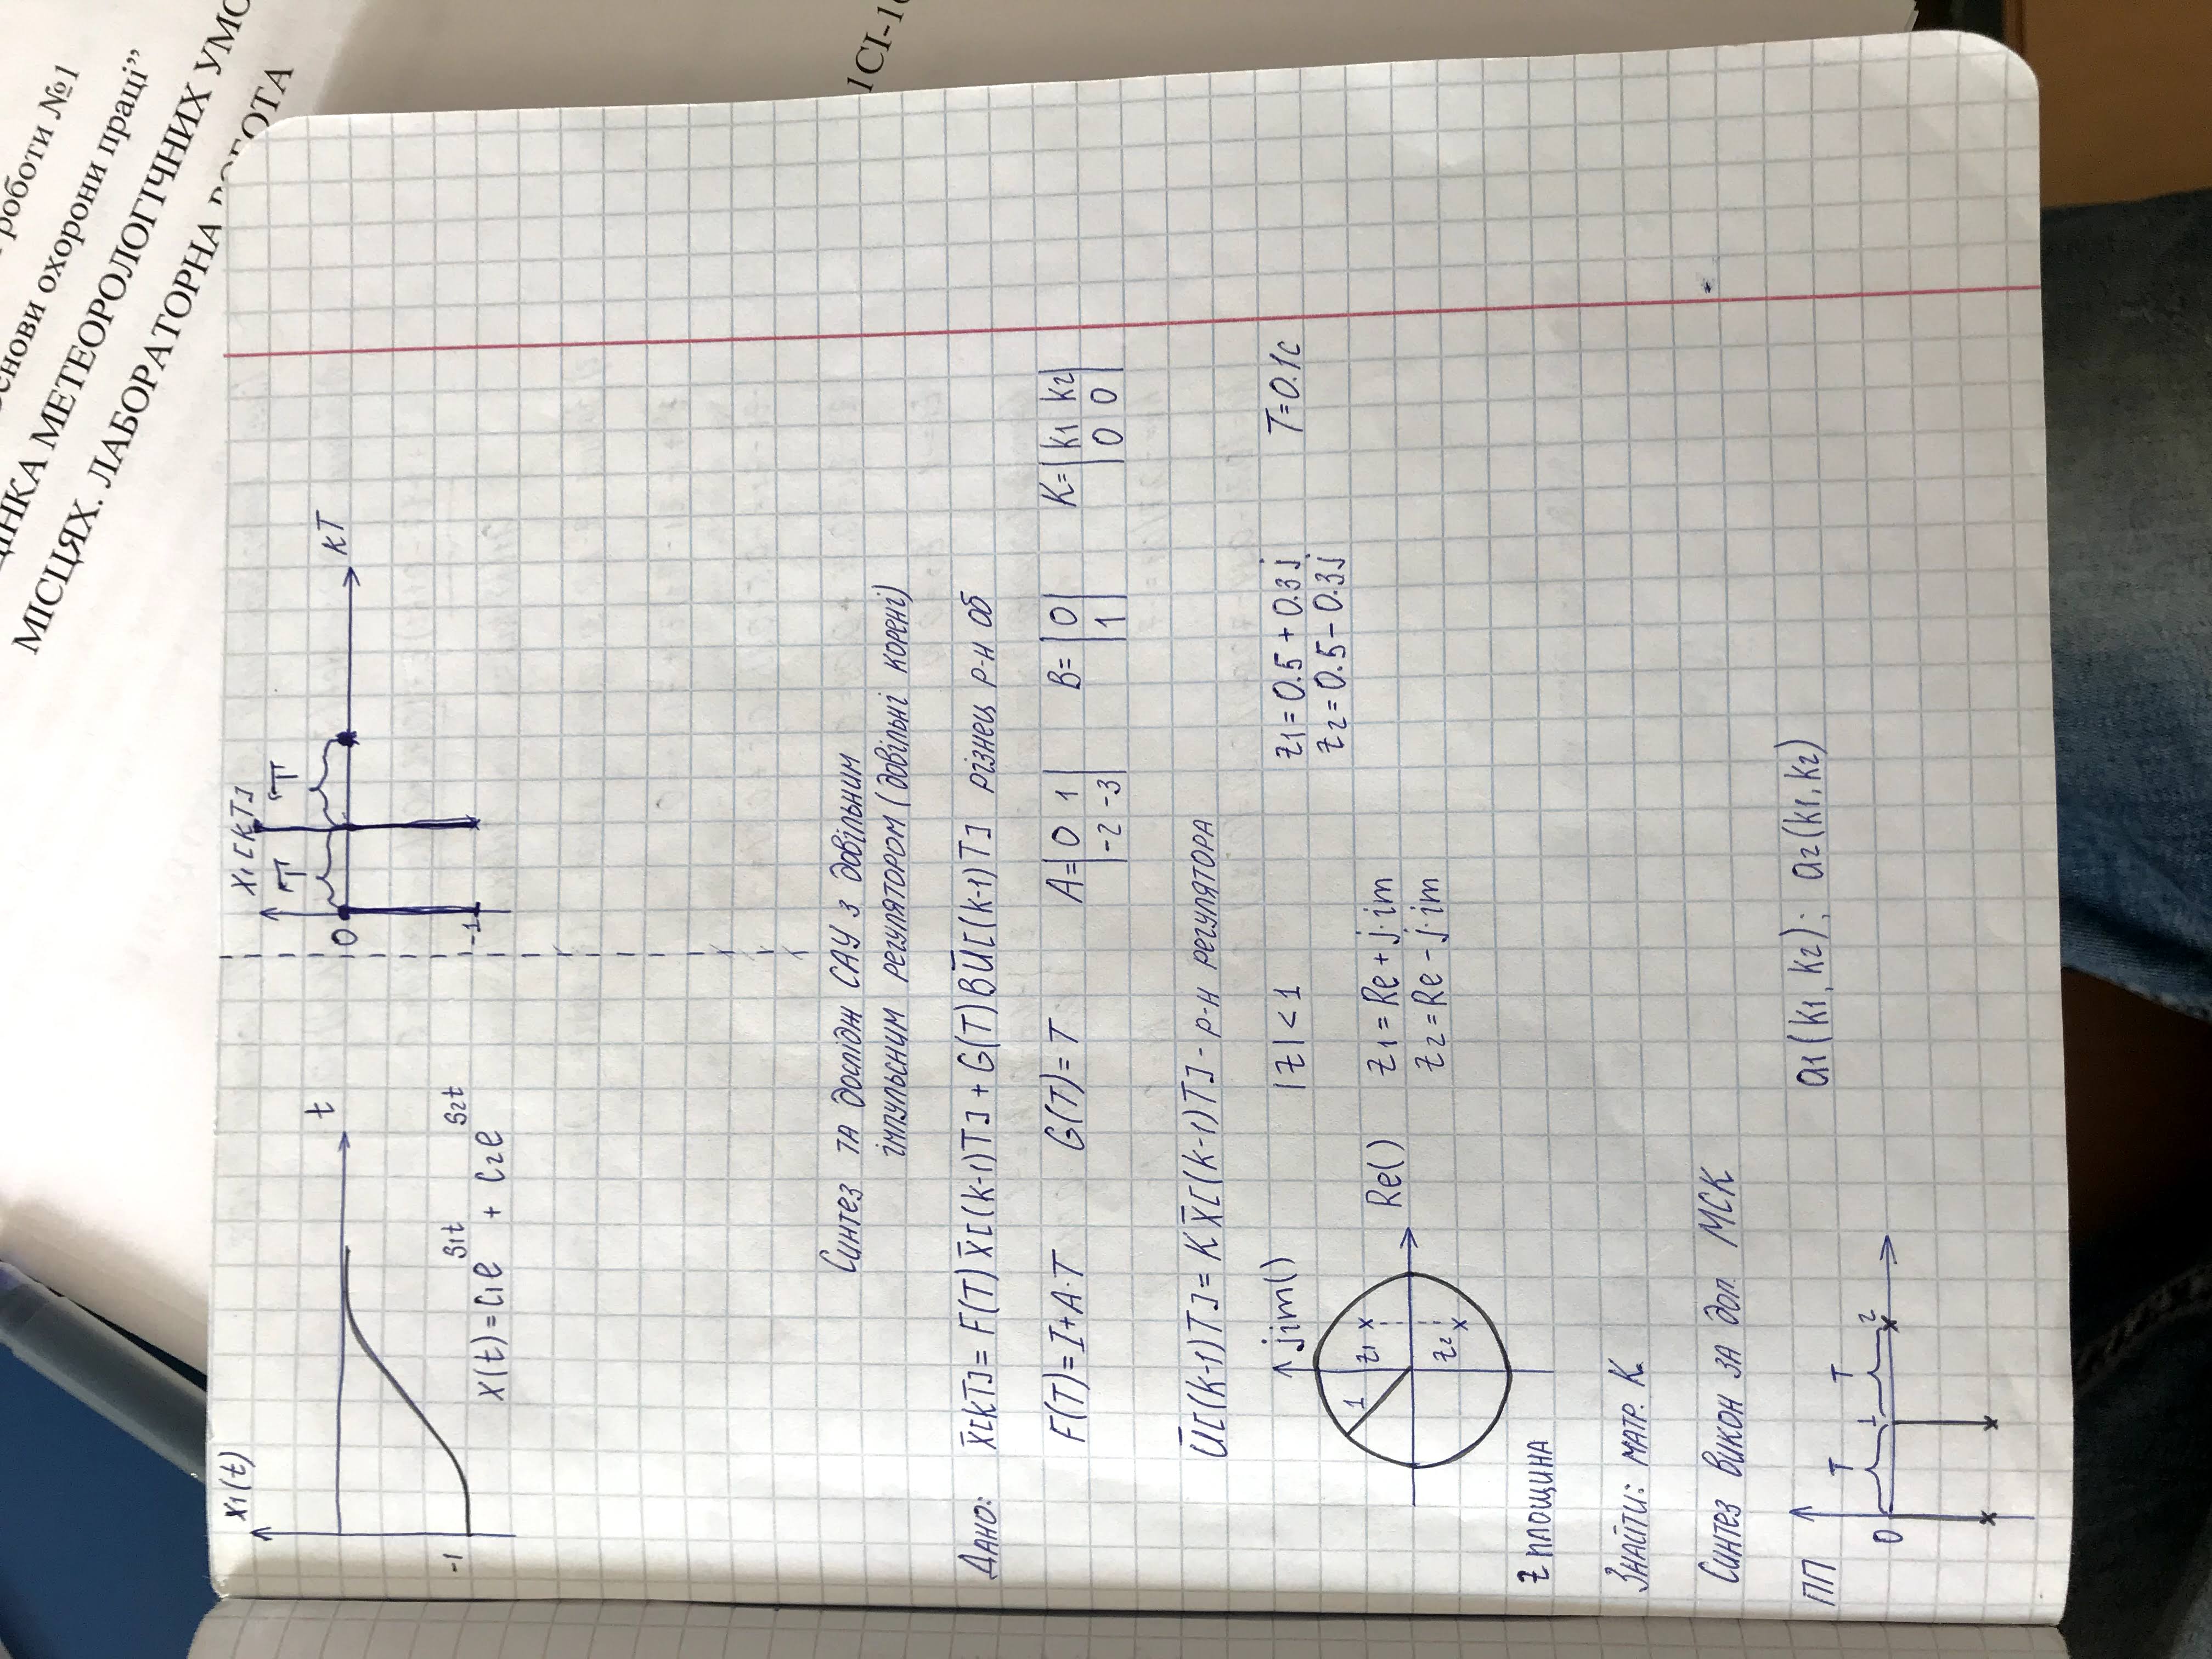 роботи №1
основи охорони праці”
ЦІНКА МЕТЕОРОЛОГІЧНИХ УМО
МІСЦЯХ. ЛАБОРАТОРНА РОБОТА
1СІ-1
x1(t)
t
-1
x(t)=c1e^s1t + c2e^s2t
x1[kT]
T T
0
kT
-1
Синтез та дослідж САУ з довільним
імпульсним регулятором (довільні корені)
Дано: x̄[kT]= F(T) x̄[(k-1)T] + G(T)BŪ[(k-1)T] різнец р-н об
F(T)=I+A·T G(T)=T A=|0 1| B=|0| K=|k1 k2|
|-2 -3| |1| |0 0|
Ū[(k-1)T]= K x̄[(k-1)T] - р-н регулятора
jim() |z|<1 z1=0.5+0.3j T=0.1c
z2=0.5-0.3j
1 z1
Re() z1=Re+j·im
z2=Re-j·im
z2
z площина
Знайти: матр. K
Синтез викон за доп. МСК
ПП a1(k1, k2); a2(k1, k2)
T T
0 1 2